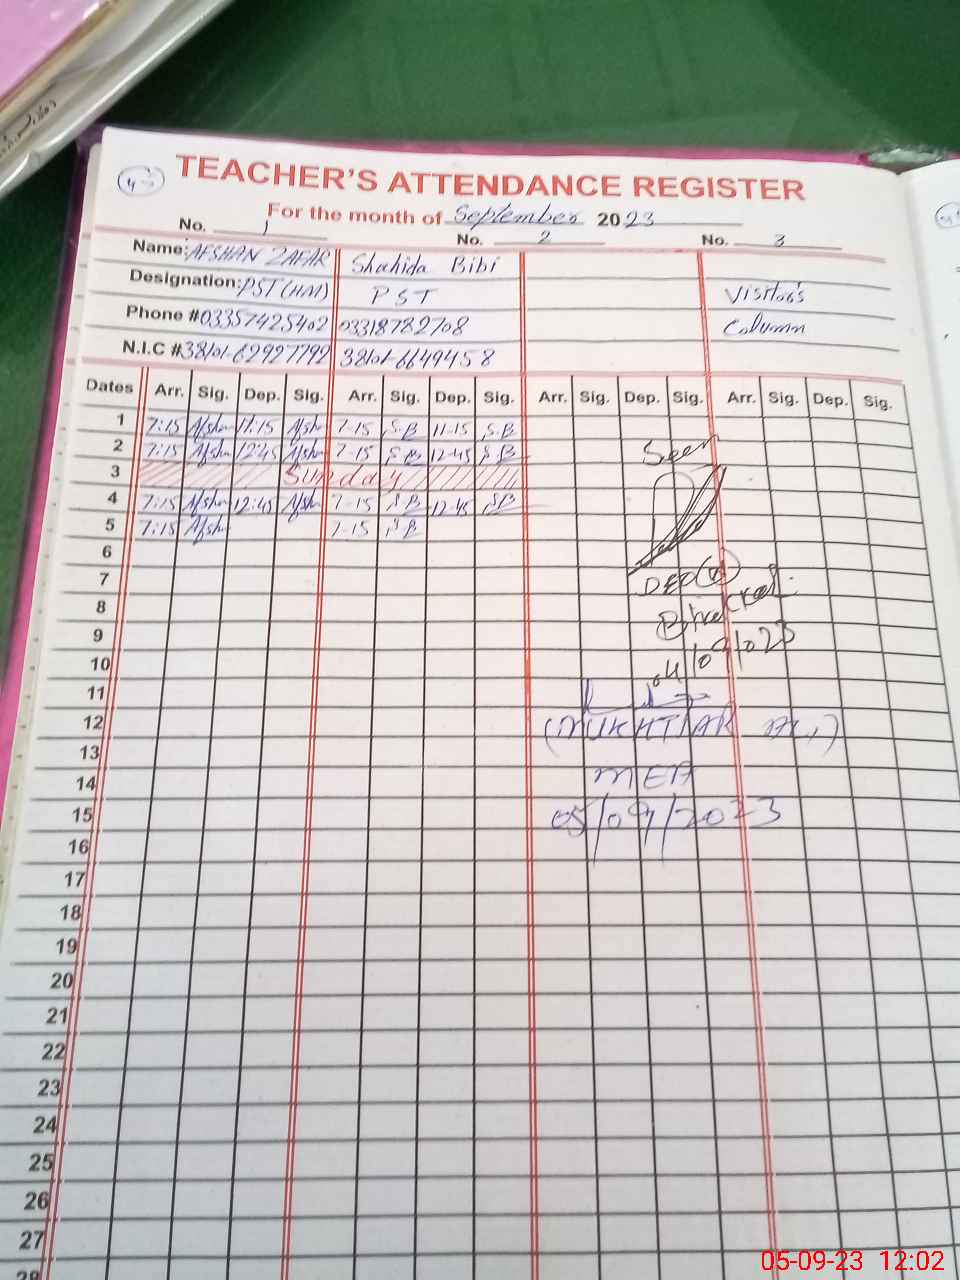 TEACHER'S ATTENDANCE REGISTER
For the month of September 2023
No. 1 No. 2 No. 3
Name: AFSHAN ZAFAR Shahida Bibi
Designation: PST (HM) PST Visitor's
Phone # 03357425402 03318782708 Column
N.I.C # 38101-62927792 38101-6649458
Dates Arr. Sig. Dep. Sig. Arr. Sig. Dep. Sig. Arr. Sig. Dep. Sig. Arr. Sig. Dep. Sig.
1 7:15 Afshan 11:15 Afshan 7-15 S.B 11-15 S.B
2 7:15 Afshan 12:45 Afshan 7-15 S.B 12-45 S.B
Seen
3 Sunday
4 7:15 Afshan 12:45 Afshan 7-15 S.B 12-45 S.B
5 7:15 Afshan 7-15 S.B
6
7
DEO
8
9
10
04/09/023
11
12
(MUKHTIAR
13
14
MEA
15
05/09/2023
16
17
18
19
20
21
22
23
24
25
26
27
28
05-09-23 12:02